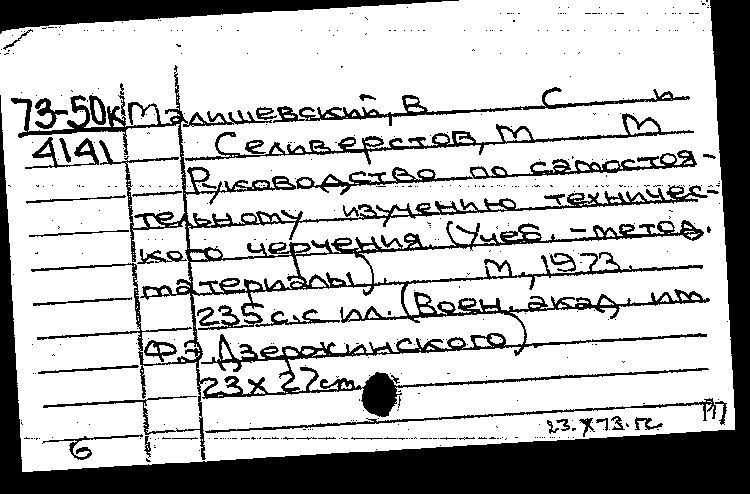 73-50к Малишевский, В С и
4141 Селиверстов, М М
Руководство по самостоя-
тельному изучению техничес-
кого черчения (Учеб.-метод.
материалы). М., 1973.
235 с. с ил. (Воен. акад. им.
Ф.Э. Дзержинского).
23 х 27 см.
23.X 73. г.
6